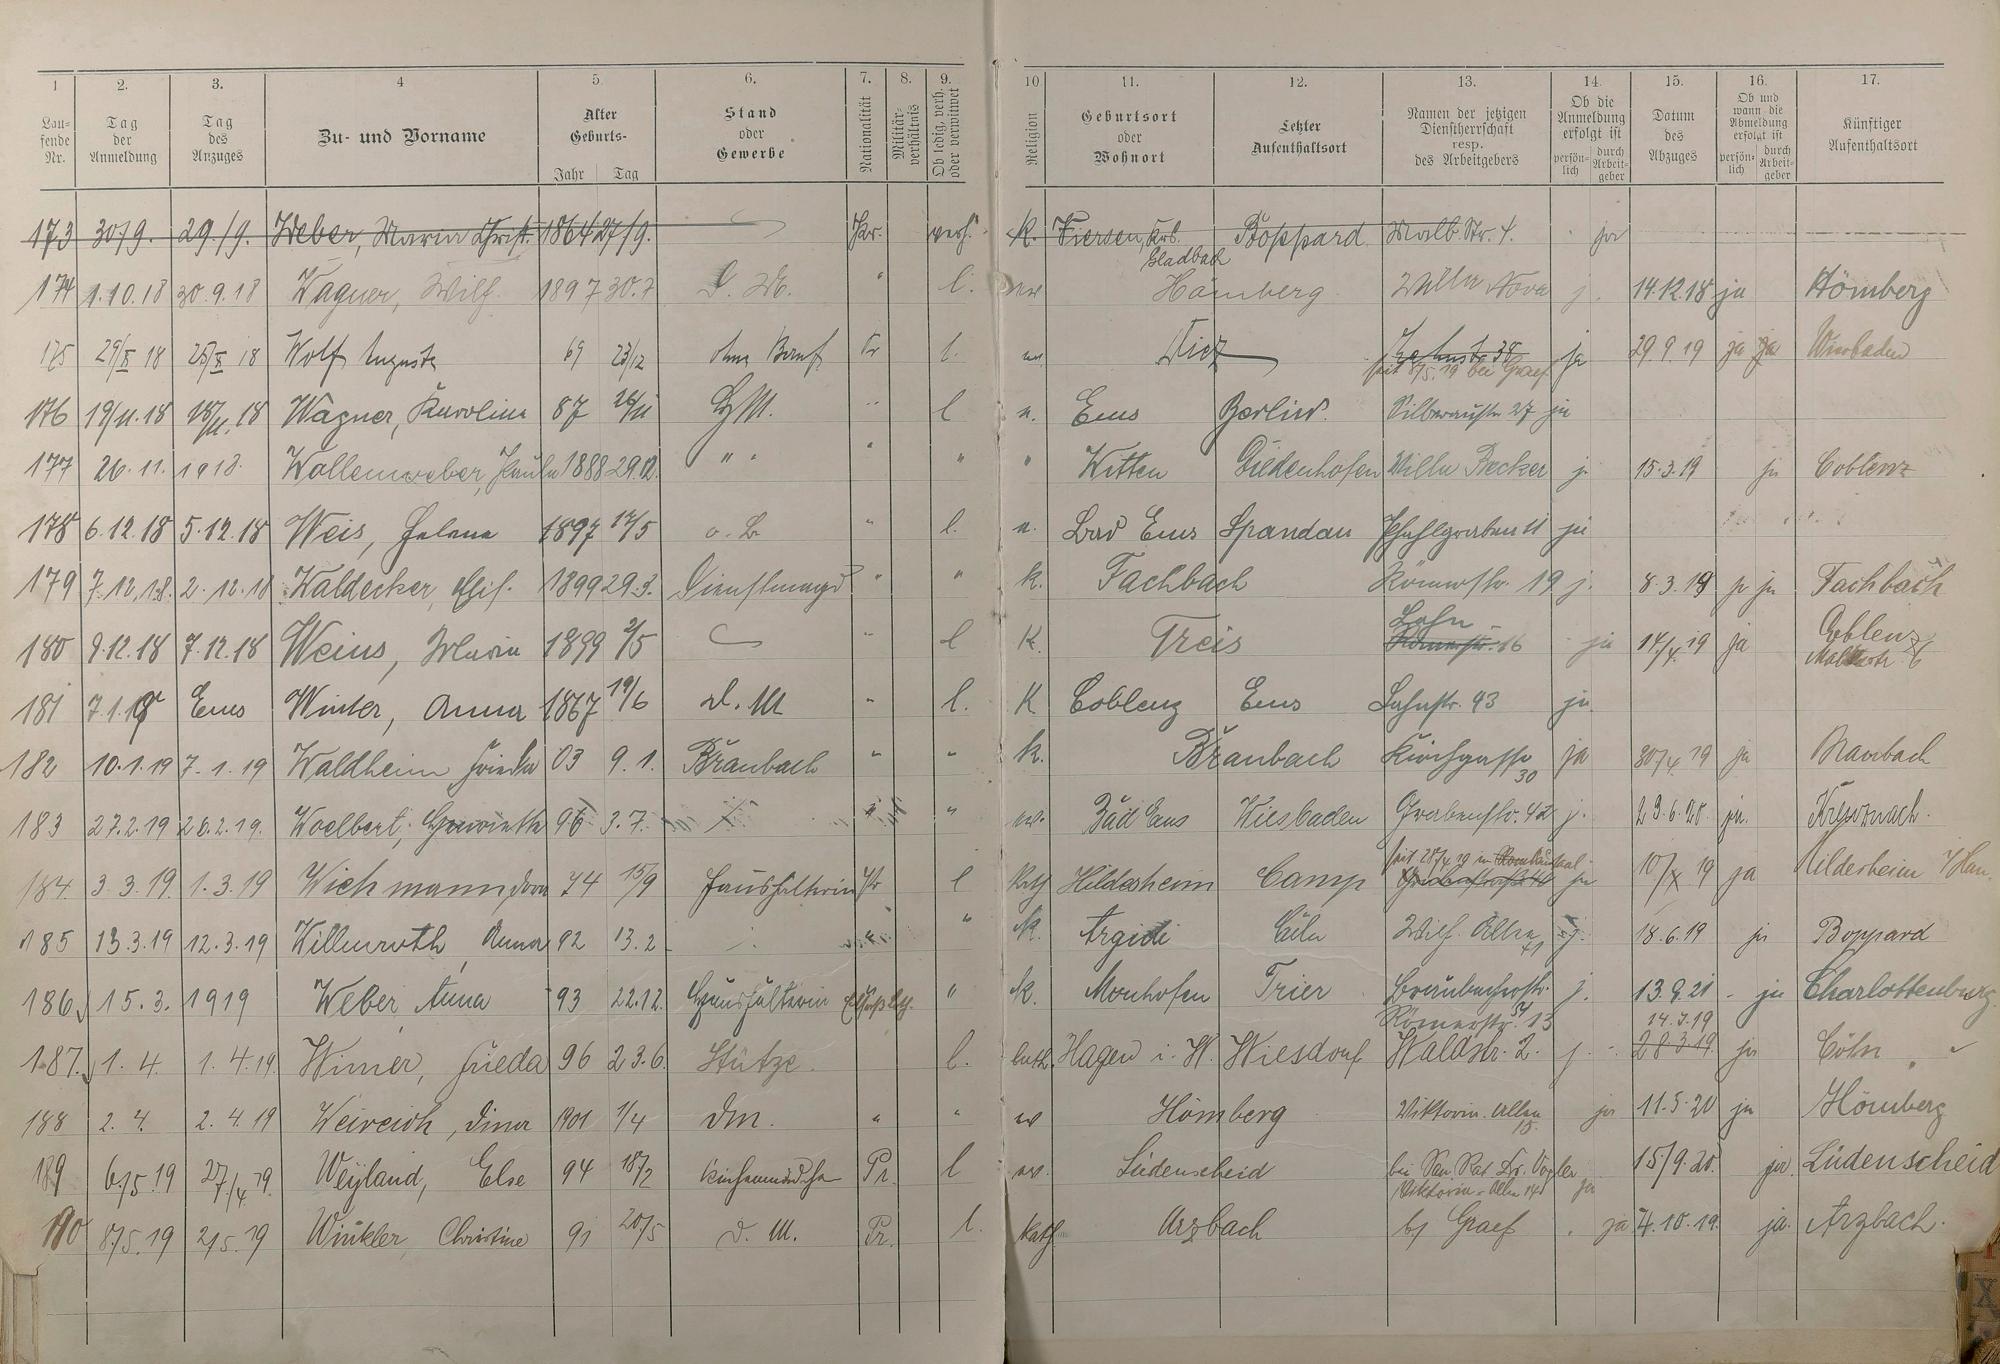 1 2. 3. 4 5. 6. 7. 8. 9. 10 11. 12. 13. 14. 15. 16. 17.
Laufende Nr. Tag der Anmeldung Tag des Anzuges Zu- und Vorname Alter Geburts- Jahr Tag Stand oder Gewerbe Nationalität Militärverhältnis Ob ledig, verh. oder verwitwet Religion Geburtsort oder Wohnort Letzter Aufenthaltsort Namen der jetzigen Dienstherrschaft resp. des Arbeitgebers Ob die Anmeldung erfolgt ist persönlich durch Arbeitgeber Datum des Abzuges Ob und wann die Abmeldung erfolgt ist persönlich durch Arbeitgeber Künftiger Aufenthaltsort
173 30/9. 29./9. Weber, Maria Christ. 1864 27/9. Pr. verh. K. Viersen, Krb. Gladbach Boppard Malb. Str. 4. ja
174 1.10.18 30.9.18 Wagner, Wilh. 1897 30.7 D. M. " l. ev Hömberg Villa Nova j. 14.12.18 ja Hömberg
175 29/X 18 25/X 18 Wolf Auguste 69 23/12 ohne Beruf Pr l. ev. Diez 38 seit 8/5.19 bei Graef ja 29.9.19 ja ja Wiesbaden
176 19/11.18 18/11.18 Wagner, Karoline 87 26/11 " l e. Ems Berlin Silberaustr 27 ja
177 26.11. 1918. Wollenweber, Paula 1888 29.12. " " " " " Witten Güdenhofen Villa Becker j. 15.3.19 ja Coblenz
178 6.12.18 5.12.18 Weis, Helene 1897 17/5 o. B. " l. e. Bad Ems Spandau Pfahlgraben 11 ja
179 7.12.18. 2.12.18 Waldecker, Elis. 1899 29.3. Dienstmagd " " k. Fachbach Römerstr. 19 j. 8.3.19 ja Fachbach
180 9.12.18 7.12.18 Weins, Maria 1899 2/5 " l K. Treis Lahn Römerstr. 16 ja 17/4.19 ja Coblenz
181 7.1.19 Ems Winter, Anna 1867 19/6 d. M " l. K Coblenz Ems Lahnstr. 93 ja
182 10.1.19 7.1.19 Waldheim Frieda 03 9.1. Braubach " " k. Braubach Kirchgasse 30 ja 30/4 19 ja Braubach
183 27.2.19 26.2.19. Woelbert, Henriette 96 3.7. " " ev. Bad Ems Wiesbaden Grabenstr. 42 j. 23.6.20 ja. Kreuznach.
184. 3.3.19. 1.3.19 Wichmann, Dora 74 15/9 Haushälterin Pr l Kath Hildesheim Camp seit 28/4 19 in ja 10/X 19 ja Hildesheim
185 13.3.19 12.3.19 Willmroth, Anna 92 13.2 " " K. Argidi Cöln Wilh. Allee 41 j. 18.6.19 ja Boppard
186. 15.3. 1919 Weber, Anna 93 22.12. Haushälterin " K. Monhofen Trier Braubacherstr. 54 j. 13.9.21 - ja Charlottenburg.
187. 1.4. 1.4.19. Wimer, Frieda 96 23.6. Stütze. l. luth. Hagen i. W. Wiesdorf Römerstr. 13 Waldstr. 2. j. 14.7.19 28.3.19. ja Cöln
188 2.4. 2.4.19 Weireich, Dina 1901 1/4 DM. " " ev Hömberg Viktoria-Allee 15. ja 11.5.20 ja Hömberg
189 6/5.19 27/4 19. Weyland, Else 94 18/2 Pr. l ev. Lüdenscheid bei San Rat Dr. Vogler Viktoria-Allee 14 ja 15/9.20. ja. Lüdenscheid
190 8/5.19 2/5.19 Winkler, Christine 91 20/5 d. M. Pr. l. kath Arzbach bj Graef ja 4.10.19. ja. Arzbach.